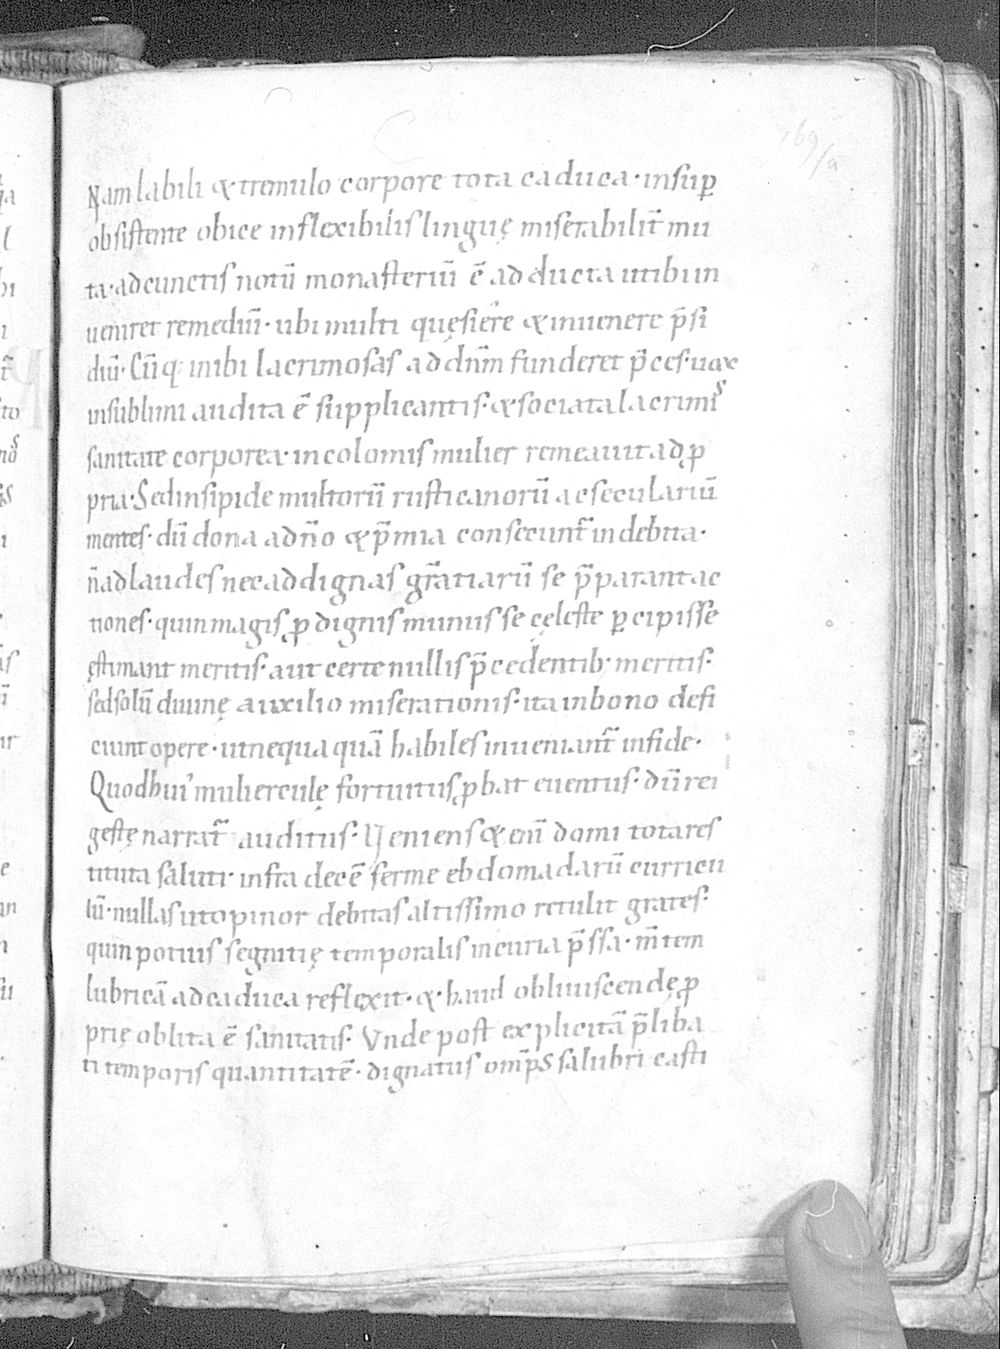 169/a
Nam labili & tremulo corpore tota caduca· insup̄
obsistente obice inflexibilis linguę miserabilit̄ mu
ta· ad cunctis notū monasteriū ē ad ducta uti bi in
ueniret remediū· ubi multi quęsiere & inuenere p̄si
diū· Cūq; inibi lacrimosas ad dn̄m funderet p̄ces· uox
in sublimi audita ē supplicantis· & sociata lacrimis
sanitate corporea· incolomis mulier remeauit ad ꝓ
pria· Sed insipide multorū rusticanorū ac seculariū
mentes· dū dona ad n̄o & p̄mia consecunt̄ indebita·
n̄ ad laudes nec ad dignas gr̄atiarū se p̄parant ac
tiones· quin magis ꝓ dignis munus se cęleste ꝑcipisse
ęstimant meritis· aut certe nullis p̄cedentib; meritis·
sed solū diuinę auxilio miserationis· ita in bono defi
ciunt opere· ut nequaquā habiles inueniant̄ in fide·
Quod hui' muliercule̜ fortuitus ꝓbat euentus· dū rei
gestę narrat̄ auditus· Ueniens & enī domi tota res
tituta saluti· infra decē ferme ebdomadarū curricu
lū· nullas ut opinor debitas altissimo retulit grates·
quin potius segnitię temporalis incuria p̄ssa· m̄tem
lubricā ad caduca reflexit· & haud obliuiscendę ꝓ
prię oblita ē sanitatis· Vnde post explicitā p̄liba
ti temporis quantitatē· dignatus om̄ps salubri casti